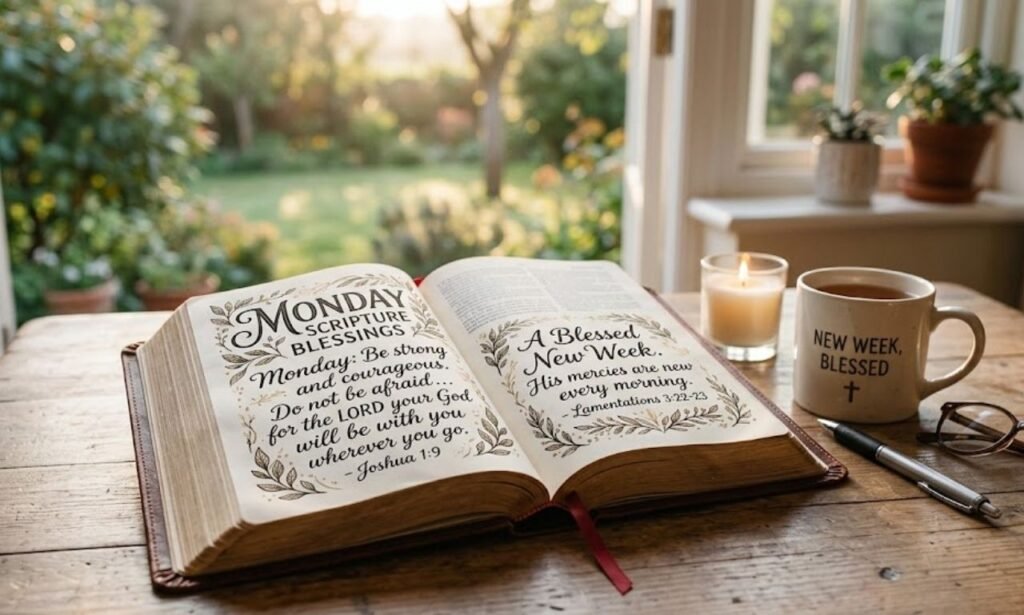 MONDAY
SCRIPTURE
BLESSINGS
Monday: Be strong
and courageous.
Do not be afraid...
for the LORD your God
will be with you
wherever you go.
- Joshua 1:9
A Blessed
New Week.
His mercies are new
every morning.
- Lamentations 3:22-23
NEW WEEK,
BLESSED